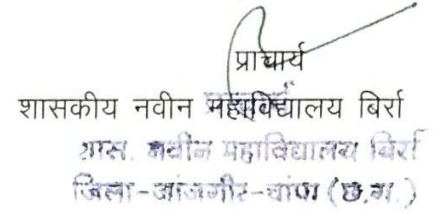 प्राचार्य
शासकीय नवीन महाविद्यालय बिर्रा
शास. नवीन महाविद्यालय बिर्रा
जिला-जांजगीर-चांपा (छ.ग.)